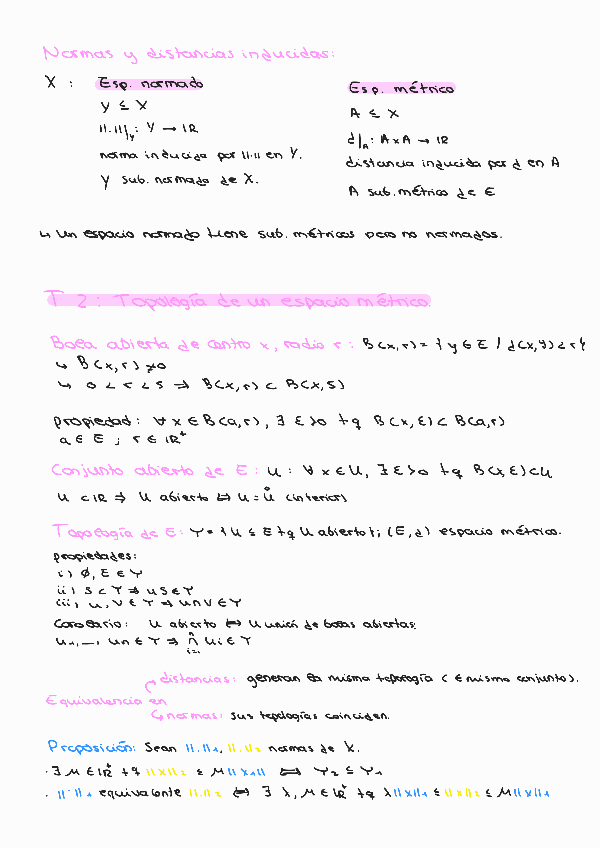 Normas y distancias inducidas:
X : Esp. normado
Y ≤ X
||·|||_Y : Y → ℝ
norma inducida por ||·|| en Y.
Y sub. normado de X.
Esp. métrico
A ≤ X
d|_A : A x A → ℝ
distancia inducida por d en A
A sub. métrico de E
↳ Un espacio normado tiene sub. métricos pero no normados.
T 2: Topología de un espacio métrico.
Bola abierta de centro x, radio r : B(x,r) = { y ∈ E / d(x,y) < r }
↳ B(x,r) ≠ ∅
↳ 0 < r < s ⇒ B(x,r) ⊂ B(x,s)
propiedad: ∀ x ∈ B(a,r), ∃ ε>0 tq B(x,ε) ⊂ B(a,r)
a ∈ E ; r ∈ ℝ⁺
Conjunto abierto de E : U : ∀ x ∈ U, ∃ ε>0 tq B(x,ε) ⊂ U
U ⊂ ℝ ⇒ U abierto ⇔ U = Ů (interior)
Topología de E : Υ = { U ≤ E tq U abierto }; (E,d) espacio métrico.
propiedades:
i) ∅, E ∈ Υ
ii) S ⊂ Υ ⇒ US ∈ Υ
iii) U, V ∈ Υ ⇒ U∩V ∈ Υ
Corolario: U abierto ⇔ U unión de bolas abiertas
U₁, ..., Un ∈ Υ ⇒ ⋂ᵢ₌₁ⁿ Ui ∈ Υ
distancias: generan la misma topología ( E mismo conjunto).
Equivalencia en
↳ normas: sus topologías coinciden.
Proposición: Sean ||·||₁, ||·||₂ normas de X.
· ∃ M ∈ ℝ⁺ tq ||x||₂ ≤ M||x||₁ ⇔ Υ₂ ⊆ Υ₁
· ||·||₁ equivalente ||·||₂ ⇔ ∃ λ, M ∈ ℝ⁺ tq λ||x||₁ ≤ ||x||₂ ≤ M||x||₁